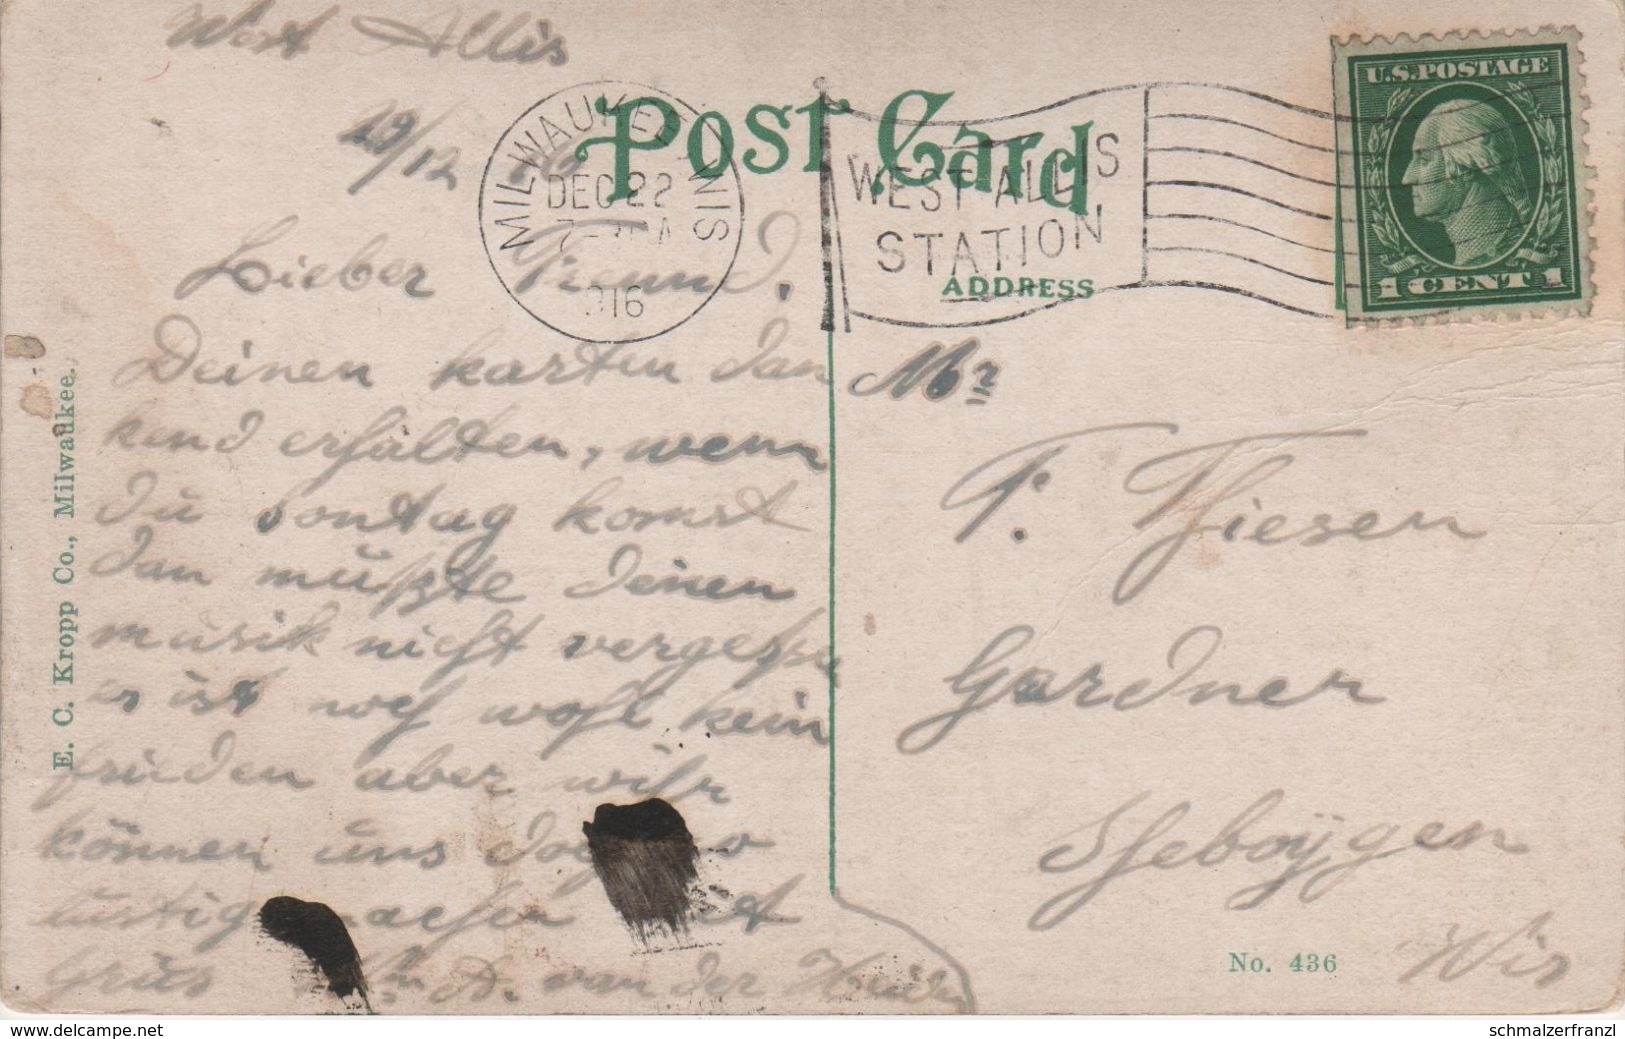 West Allis
19/12
Lieber Freund.
Deinen karten dan
kend erhalten, wenn
du sontag komst
dan mußte deinen
musik nicht vergessen
es ist noch wohl kein
frieden aber wihr
können uns doch so
lustig machen
Grus A. van der Heiden
MILWAUKEE, WIS
DEC 22
7-30 A
1916
WEST ALLIS
STATION
POST CARD
ADDRESS
U.S.POSTAGE
1 CENT 1
Mr
P. Thiesen
Gardner
Sheboygen
Wis
No. 436
E. C. Kropp Co., Milwaukee.
www.delcampe.net
schmalzerfranzl